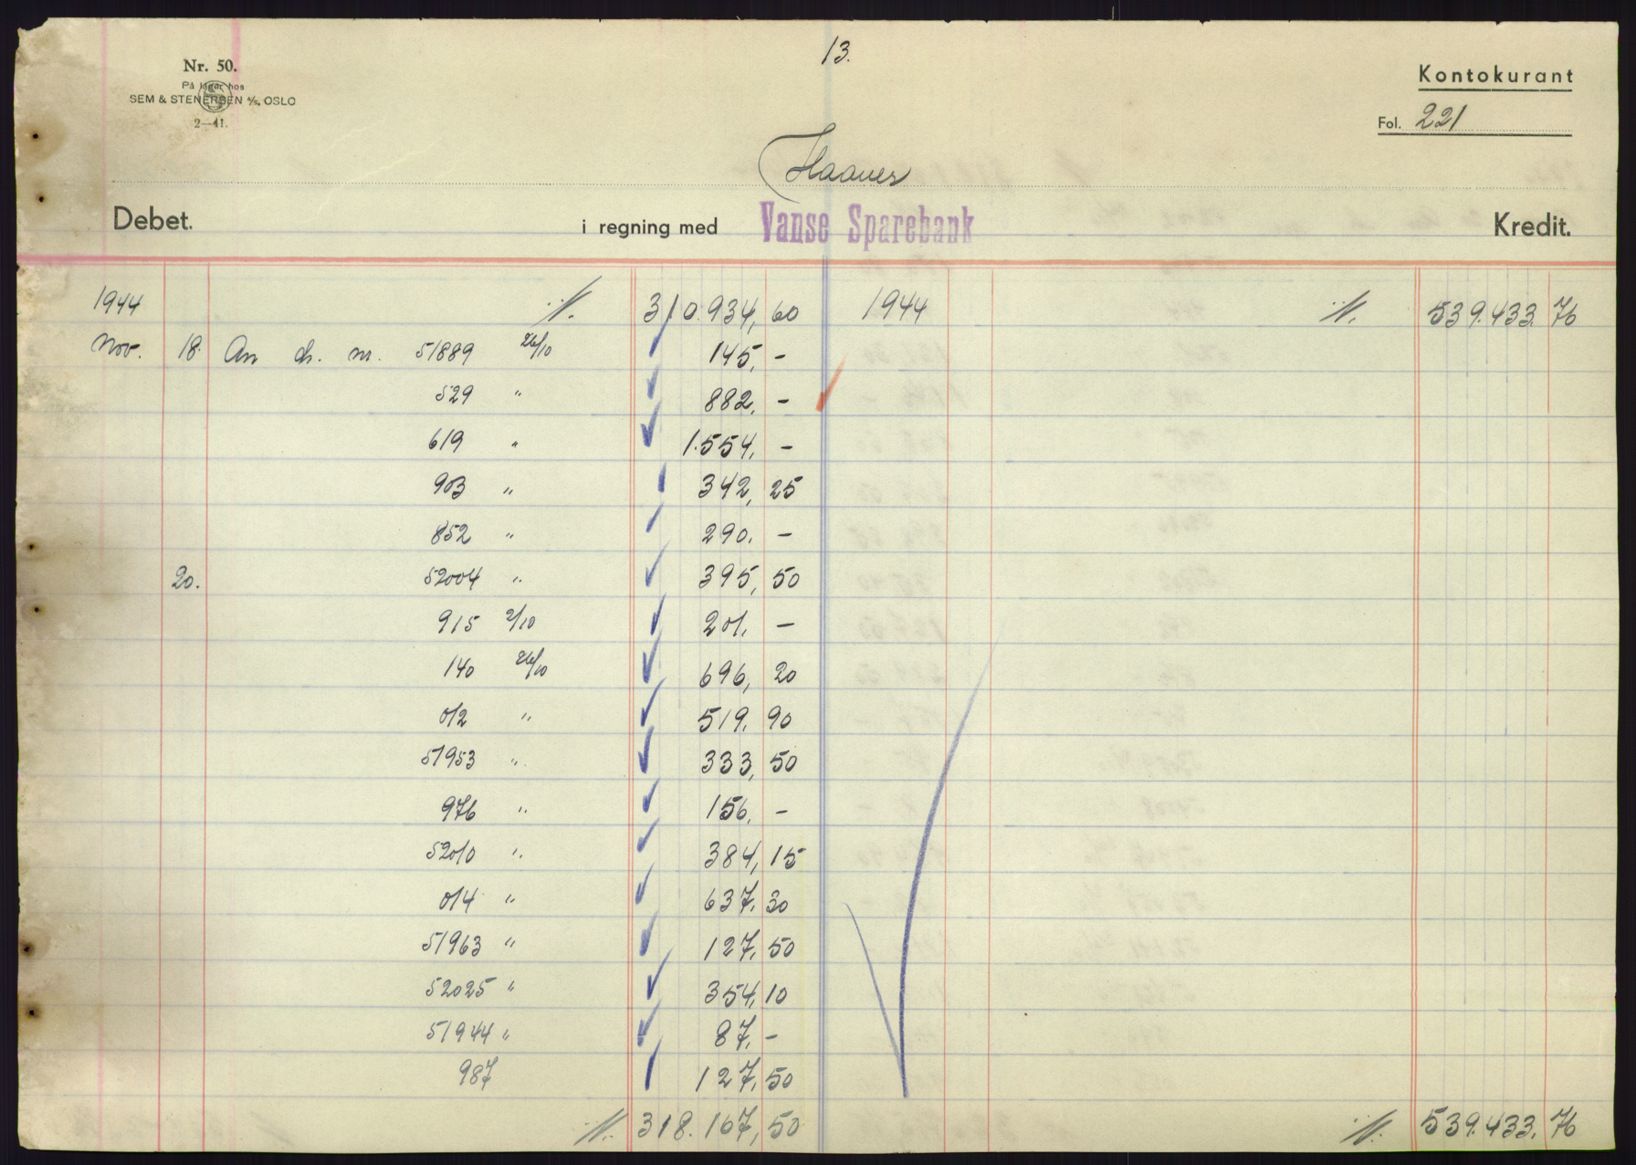 13.
Nr. 50.
På lager hos
SEM & STENERSEN A/S, OSLO
2—41.
Kontokurant
Fol. 221
Haaves
Debet. i regning med Vanse Sparebank Kredit.
1944 ·/·. 310.934,60 1944 ·/·. 539.433.76
Nov. 18. An ch. nr. 51889 26/10 145,-
529 " 882,-
619 " 1.554,-
903 " 342,25
852 " 290.-
20. 52004 " 395,50
915 2/10 201,-
140 26/10 696,20
012 " 519.90
51953 " 333,50
976 " 156,-
52010 " 384,15
014 " 637,30
51963 " 127,50
52025 " 354,10
51944 " 87,-
987 127,50
·/·. 318.167,50 ·/·. 539.433.76